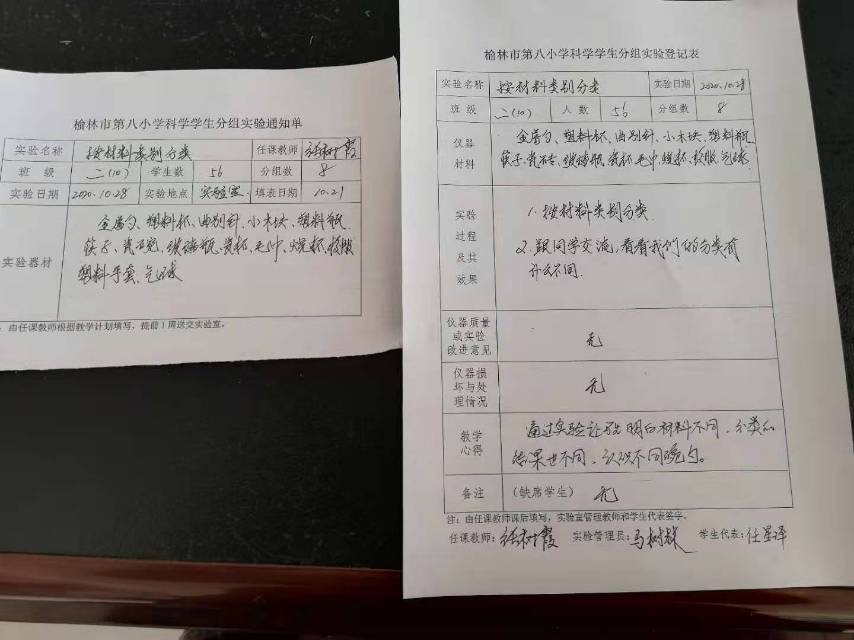 榆林市第八小学科学学生分组实验通知单
实验名称 按材料类别分类 任课教师
班 级 二(10) 学生数 56 分组数 8
实验日期 2020.10.28 实验地点 实验室 填表日期 10.21
实验器材
金属勺、塑料杯、曲别针、小木块、塑料瓶
筷子、玻璃瓶、瓷杯、毛巾、烧杯
塑料手套、气球
:由任课教师根据教学计划填写,提前1周送交实验室。
榆林市第八小学科学学生分组实验登记表
实验名称 按材料类别分类 实验日期 2020.10.28
班 级 二(10) 人 数 56 分组数 8
仪器
材料
金属勺、塑料杯、曲别针、小木块、塑料瓶
筷子、玻璃瓶、瓷杯、毛巾、烧杯、气球
实验
过程
及其
效果
1.按材料类别分类
2.跟同学交流,看看我们的分类有
什么不同.
仪器质量
或实验
改进意见
无
仪器损
坏与处
理情况
无
教学
心得
通过实验让 明白材料不同、分类的
结果也不同、认识不同
备注 (缺席学生) 无
注:由任课教师课后填写,实验室管理教师和学生代表签字。
任课教师: 实验管理员:马树 学生代表:任星泽